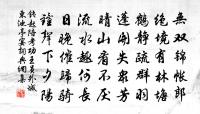 無雙錦帳郎
絕境有林塘
鶴靜疏群羽
蓮開失眾芳
晴山看不厭
流水趣何長
日晚催歸騎
鐘聲下夕陽
錢起陪考功王員外城
東池亭宴詞典網集